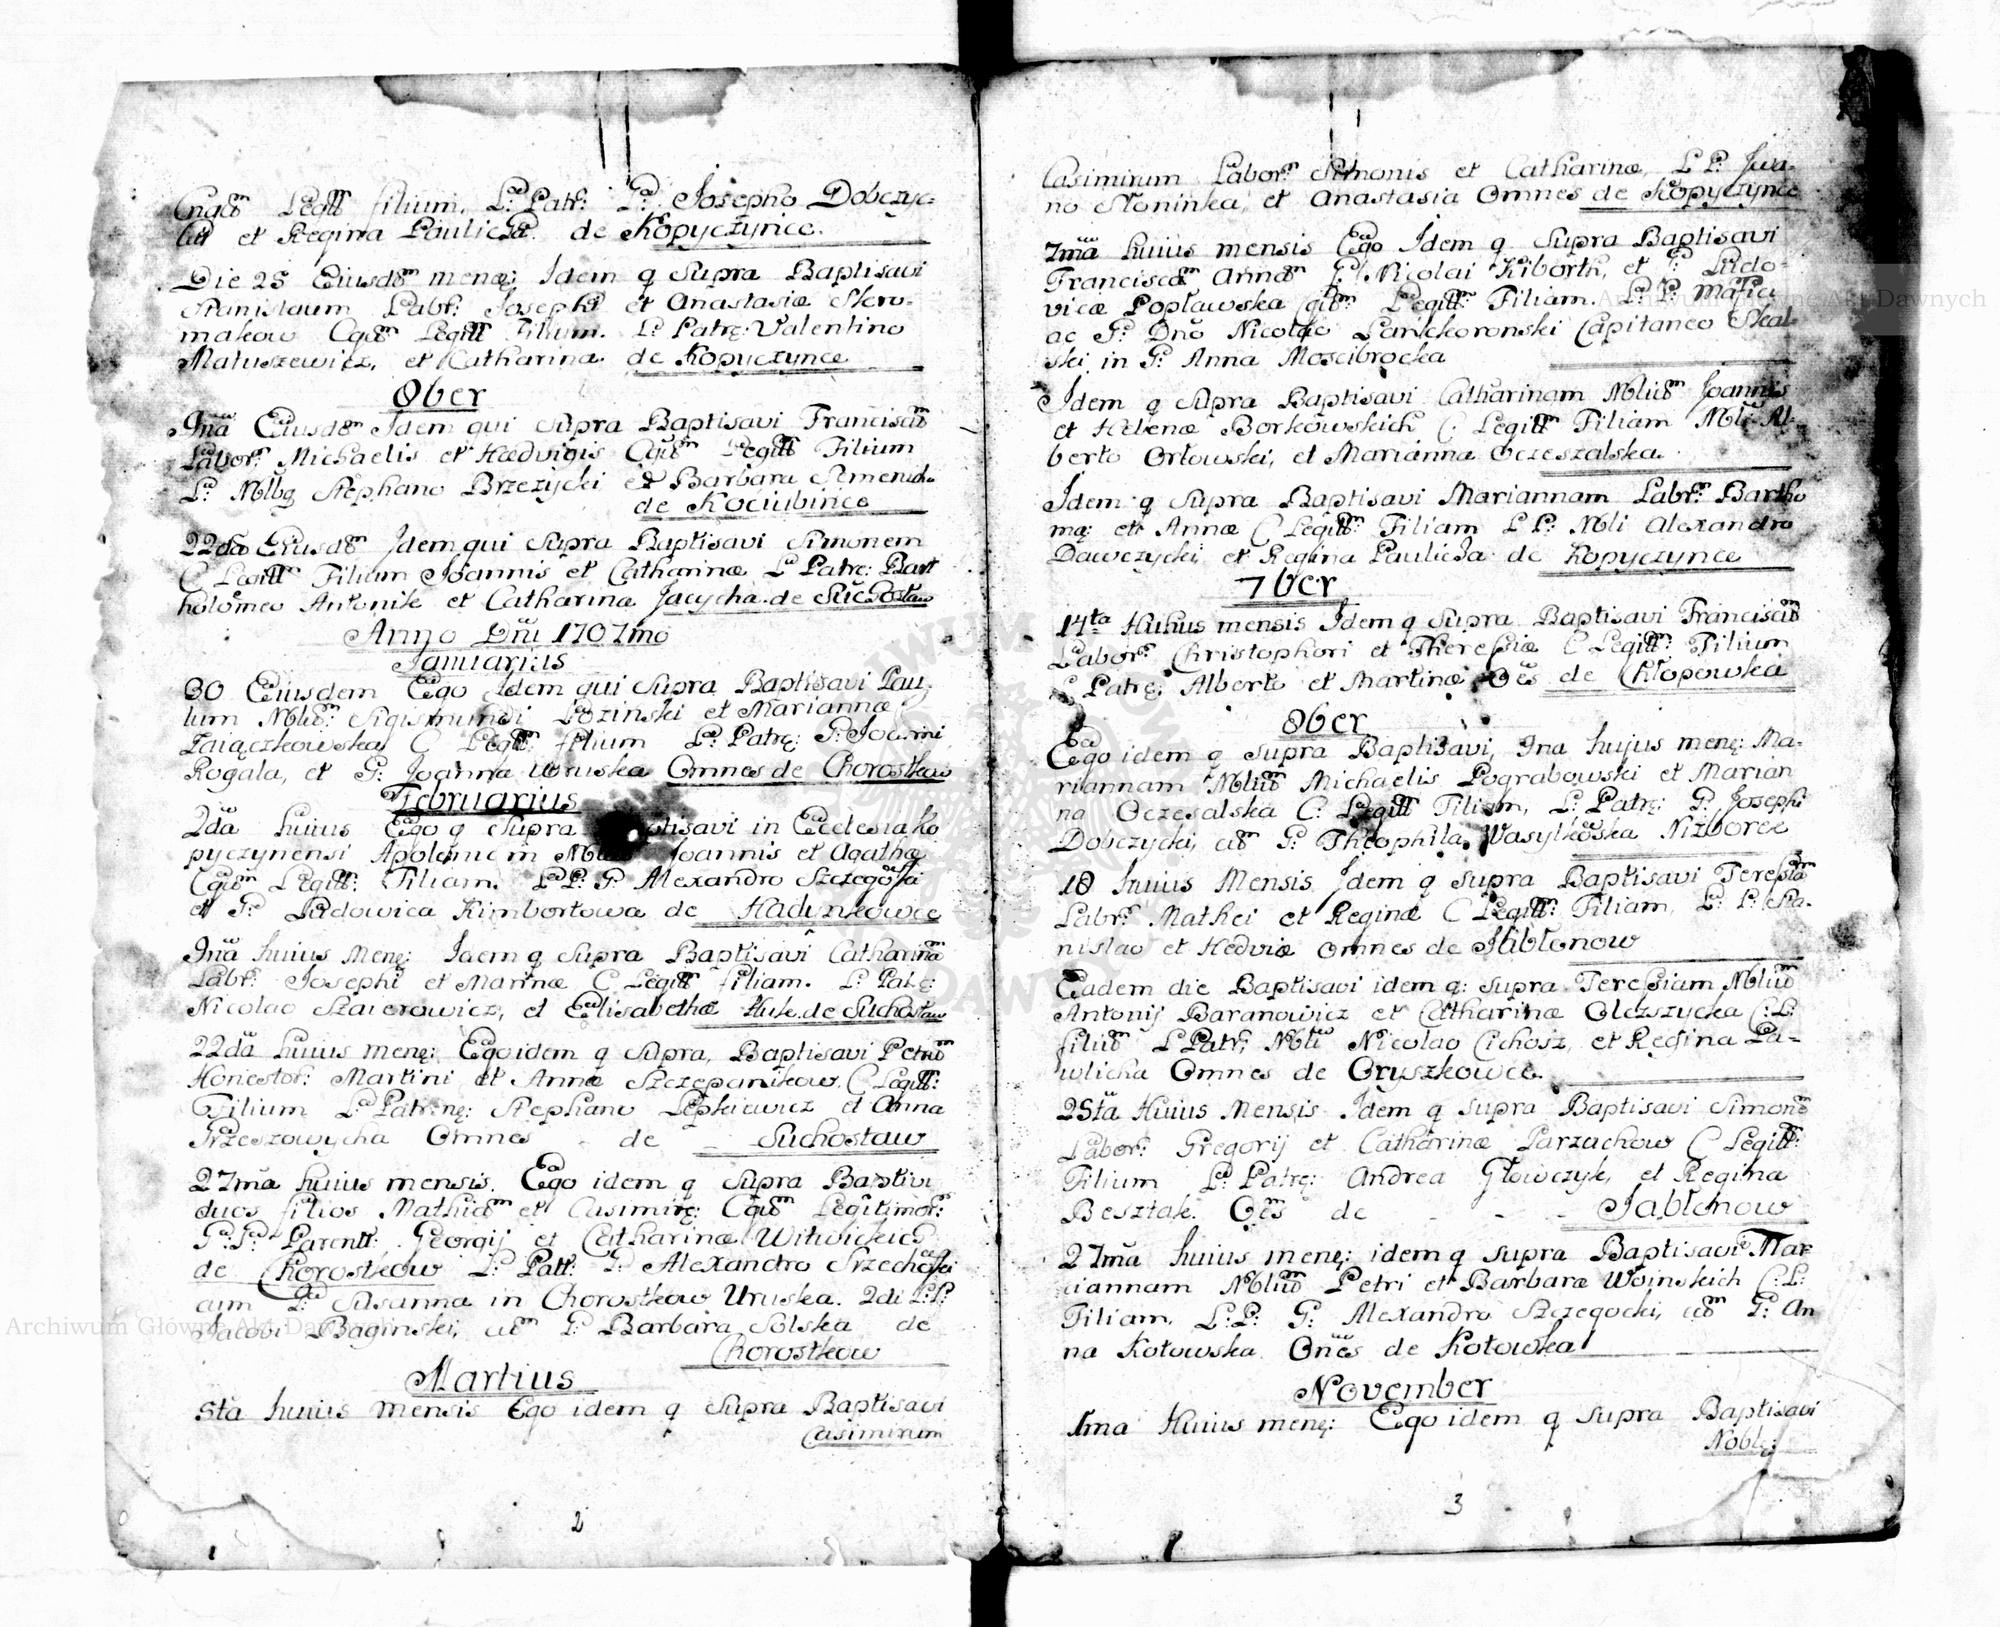 Cngõm Legitt filium. Lc Patr: G: Josepho Dobczyc=
ki et Regina Paulicka de Kopyczynce.
Die 25 Eiusdem menę: Idem q supra Baptisavi
Stanislaum Labr: Josephi et Anastasiæ
makow Cgõm Legitt Filium. Lc Patrę: Valentino
Matuszewicz, et Catharina de Kopyczynce
8ber
9na Eiusdem Idem qui supra Baptisavi Franciscum
Labor: Michaelis et Hædvigis Cgõm Legitt Filium
Lc Nlbg Stephano Brzezycki et Barbara
de Kociubince
22da Eiusdem Idem qui supra Baptisavi Simonem
C Legitt Filium Joannis et Catharinæ Lc Patrę: Bart
holomeo Antonik et Catharina Jacycha de Suchostaw
Anno Dni 1707mo
Januarius
30 Eiusdem Ego Idem qui supra Baptisavi Pau-
lum Nlium Sigismundi Łozinski et Mariannæ
Zaiączkowska C Legitt: filium Lc Patrę: G: Joanni
Rogala, et G: Joanna Uruska Omnes de Chorostkow
Februarius
2da huius Ego q supra Baptisavi in Ecclesia Ko
pyczynensi Joannis et Agathæ
Cgõm Legitt: Filiam. LcP: G: Alexandro Szczegocki
et G: Ludowica Kimbortowa de Hadynkowce
9na huius Menę: Idem q supra Baptisavi Catharinã
Labr: Josephi et Marinæ C Legitt filiam. Lc Patrę:
Nicolao Szaierowicz, et Elisabethæ Huk. de Suchostaw
22da huius menę: Ego idem q supra, Baptisavi Petrum
Honestor: Martini et Annæ Szczepanikow, C Legitt:
Filium Lc Patrenę: Stephano Lepkiewicz et Anna
Przeszowycha Omnes - de - Suchostaw
27ma huius mensis. Ego idem q supra Baptivi
duos filios Mathiam et Casimirę: Cgõm Legitimor:
G:G: Parentt: Georgij et Catharinæ Witwickich
de Chorostkow Lc Patt: G: Alexandro Strzechocki
cum G: Susanna in Chorostkow Uruska. 2di L:P:
Jacobi Baginski, cum G: Barbara Solska de
Chorostkow
Martius
5ta huius mensis Ego idem q supra Baptisavi
Casimirum
2
Casimirum Labor: Simonis et Catharinæ, L P: Jwa-
no Słoninka, et Anastasia Omnes de Kopyczynce
7ma huius mensis Ego Idem q supra Baptisavi
Franciscam Annam G: Nicolai Kiborth, et G: Ludo-
vicæ Popławska Cgõm Legitt: Filiam. L P:
ac G: Dno Nicolao Lanckoronski Capitaneo Skal-
ski in G: Anna Moscibrocka
Idem q supra Baptisavi Catharinam Nlium Joannis
et Helenæ Borkowskich C: Legitt Filiam Nli Al-
berto Orłowski, et Marianna Oczeszalska.
Idem q supra Baptisavi Mariannam Labr: Bartho
mę: et Annæ C Legitt: Filiam L P: Nli Alexandro
Dawczycki, et Regina Paulicka de Kopyczynce
7ber
14ta Huius mensis Idem q supra Baptisavi Franciscum
Labor: Christophori et Theresiæ C Legitt: Filium
Lc Patrę: Alberto et Martinæ Oes de Chłopowka
8ber
Ego idem q supra Baptisavi, 9na hujus menę: Ma-
riannam Nlium Michaelis Pograbowski et Marian
na Oczesalska C: Legitt Filiam, Lc Patrę: G: Josephi
Dobczycki, cum G: Theophila Wasylkowska Nizborce
10 huius Mensis Idem q supra Baptisavi Teresiam
Labr: Mathei et Reginæ C Legitt: Filiam, L: P: Sta-
nislao et Hedviæ omnes de Jabłonow
Eadem die Baptisavi idem q: supra Teresiam Nlium
Antonij Baranowicz et Catharinæ Olczszycka C:L:
filium L Patr: Nli Nicolao Cichosz, et Regina Pa-
wlicha Omnes de Oryszkowce.
25ta Huius Mensis Idem q supra Baptisavi Simonem
Labor: Gregorij et Catharinæ Parzuchow C Legitt:
Filium Lc Patrę: Andrea Głowczyk, et Regina
Besztak. Oes de - - - Jabłonow
27ma huius menę: idem q supra Baptisavi Mar
riannam Nlium Petri et Barbaræ Woinskich C:L:
Filiam, L:P: G: Alexandro Szczegocki, cum G: An
na Kotowska. Ones de Kotowka
November
1ma Huius menę: Ego idem q supra Baptisavi
Noblę:
3
Archiwum Główne Akt Dawnych
Archiwum Główne Akt Dawnych